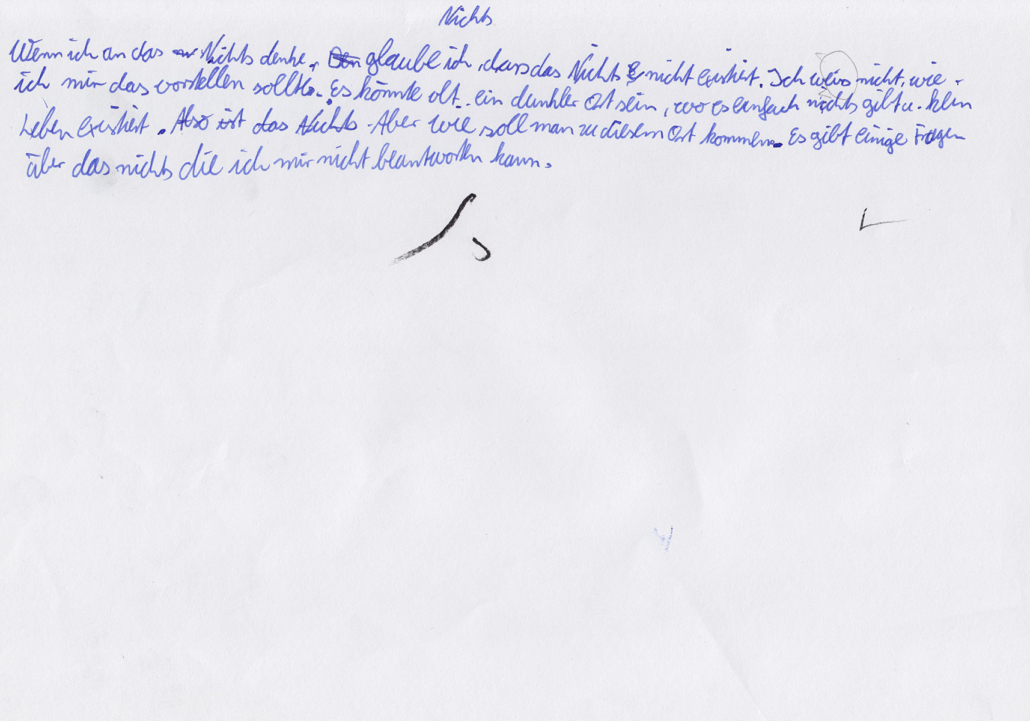 Nichts
Wenn ich an das Nichts denke, glaube ich, dass das Nichts nicht existiert. Ich weiss nicht, wie
ich mir das vorstellen sollte. Es könnte ein dunkler Ort sein, wo es einfach nichts gibt u. kein
Leben existiert. Also ist das Nichts. Aber wie soll man zu diesem Ort kommen. Es gibt einige Fragen
über das nichts die ich mir nicht beantworten kann.